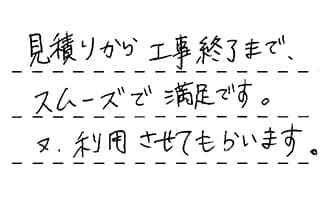 見積りから工事終了まで、
スムーズで満足です。
又、利用させてもらいます。